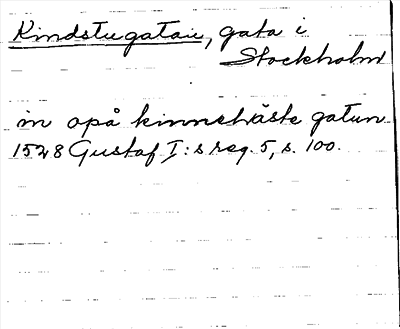 Kindstugatan, gata i
Stockholm
in opå kinnehäste gatun
1528 Gustaf I:s reg. 5, s. 100.